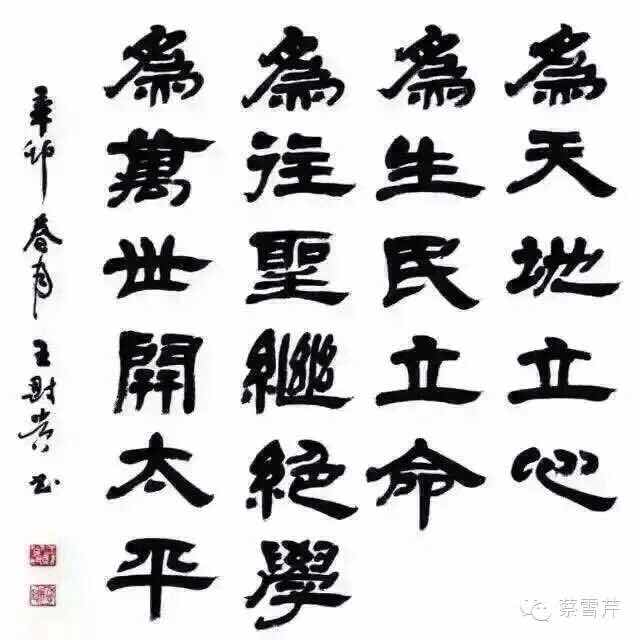 為天地立心
為生民立命
為往聖繼絕學
為萬世開太平
辛卯春月王財貴書
蔡雪芹